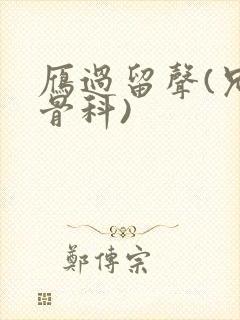 雁過留聲(兄
骨科)
鄭傳宗